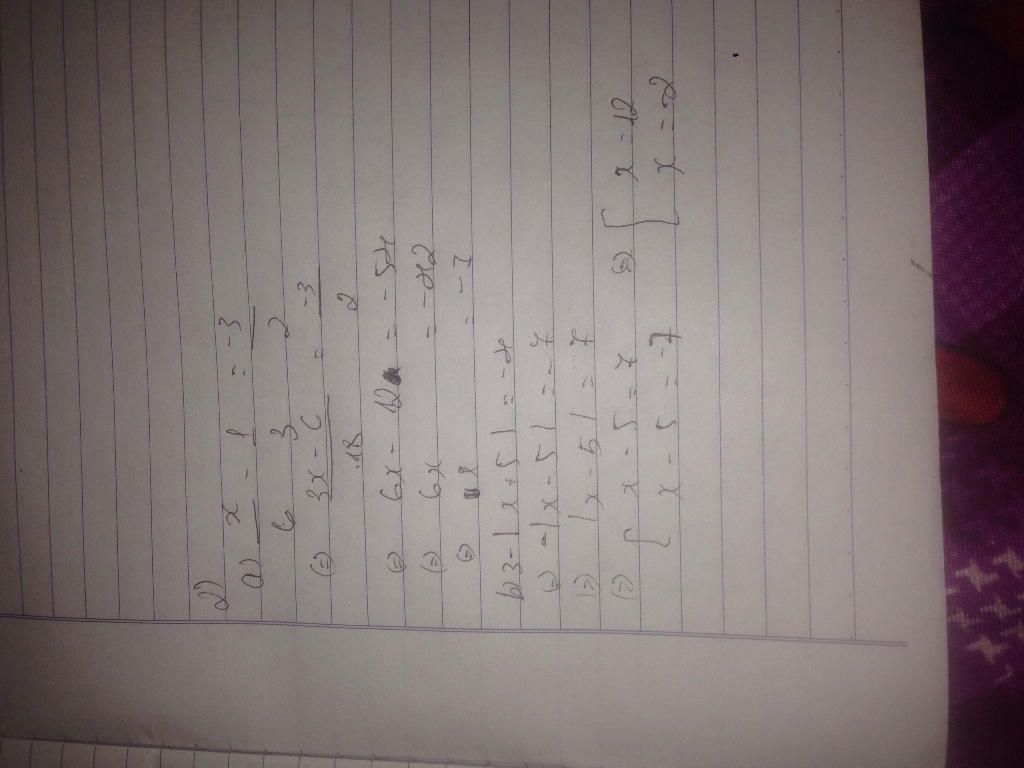 2)
a) x/6 - 1/3 = -3/2
(=) 3x-6/18 = -3/2
(=) 6x - 12 = - 54
(=) 6x = -42
(=) x = -7
b) 3-|x-5| = -4
(=) -|x-5| = -7
(=) |x-5| = 7
(=) [ x-5=7 (=) [ x=12
x-5=-7 x=-2